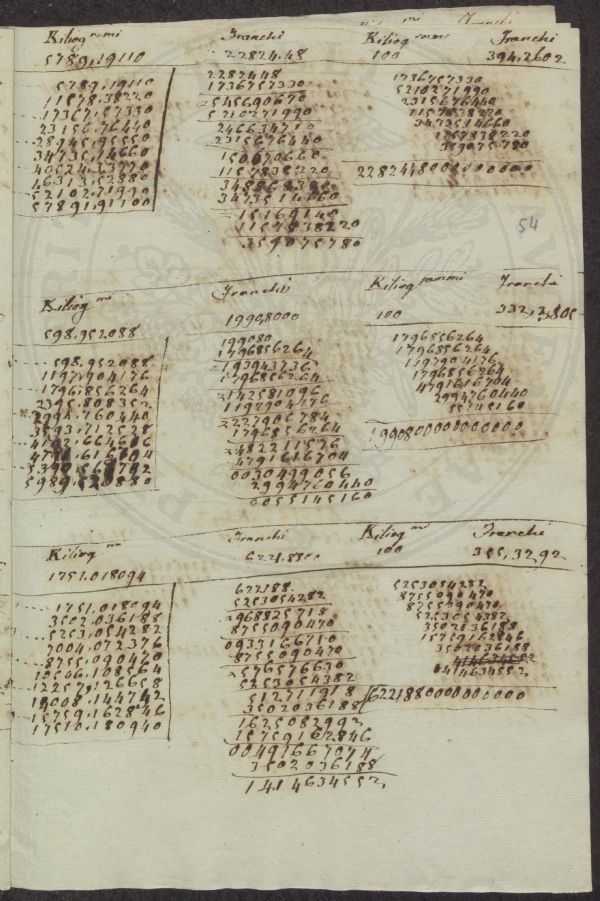 Kiliog mmi Franchi Kiliog rammi Franchi
5789,19110 22824.48 100 394.2602.
5789,19110
11578.38220
17367.57330
23156.76440
28945.95550
34735.14660
40524.33770
46313.52880
52102.71990
57891.91100
2282448
1736757330
545690670
5210271990
246634710
2315676440
150670660
1157838220
348868380
3473514660
15169140
1157838220
359075780
1736757330
5210271990
2315676440
1157838220
3473514660
1157838220
359075780
2282448000000000
54
Kiliog mi Franchi Kiliog rammi Franchi
598.952088 19908000 100 332,3805
598.952088
1197.904176
1796.856264
2395.808352
2994.760440
3593.712528
4192.664616
4791.616704
5390.568792
5989.520880
199080
1796856264
193943736
1796856264
142581096
1197904176
227906784
1796856264
482211576
4791616704
0030499056
2994760440
0055145160
1796856264
1796856264
1197904176
1796856264
4791616704
2994760440
55145160
199080000000000
Kiliog mi Franchi Kiliog mi Franchi
1751.018094 6221.8800 100 355,3292
1751.018094
3502.036188
5253.054282
7004.072376
8755.090460
10506.108564
12257.126658
14008.144742
15759.162846
17510.180940
622188.
5253054282
968825718
8755090470
0933166710
8755090470
576576630
5253054382
512711918
3502036188
1625082992
15759162846
00491667074
3502036188
1414634552,
5253054282
8755090470
8755090470
5253054382
3502036188
15759162846
3502036188
1414634552
1414634552,
622188000000000